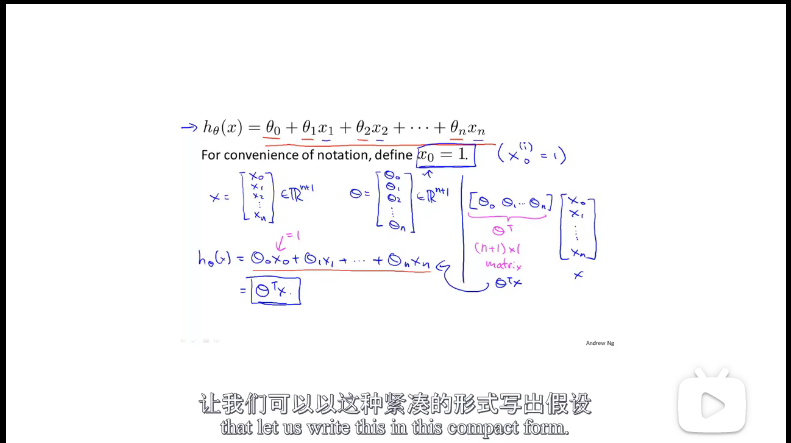 → hθ(x) = θ₀ + θ₁x₁ + θ₂x₂ + ⋯ + θₙxₙ
For convenience of notation, define x₀ = 1. (x₀⁽ⁱ⁾ = 1)
x = [x₀ x₁ x₂ ⋮ xₙ] ∈ ℝⁿ⁺¹ θ = [θ₀ θ₁ θ₂ ⋮ θₙ] ∈ ℝⁿ⁺¹
[θ₀ θ₁ ... θₙ] [x₀ x₁ ⋮ xₙ]
θᵀ
(n+1)×1
matrix
x
θᵀx
= 1
hθ(x) = θ₀x₀ + θ₁x₁ + ⋯ + θₙxₙ
= θᵀx.
Andrew Ng
让我们可以以这种紧凑的形式写出假设
that let us write this in this compact form.